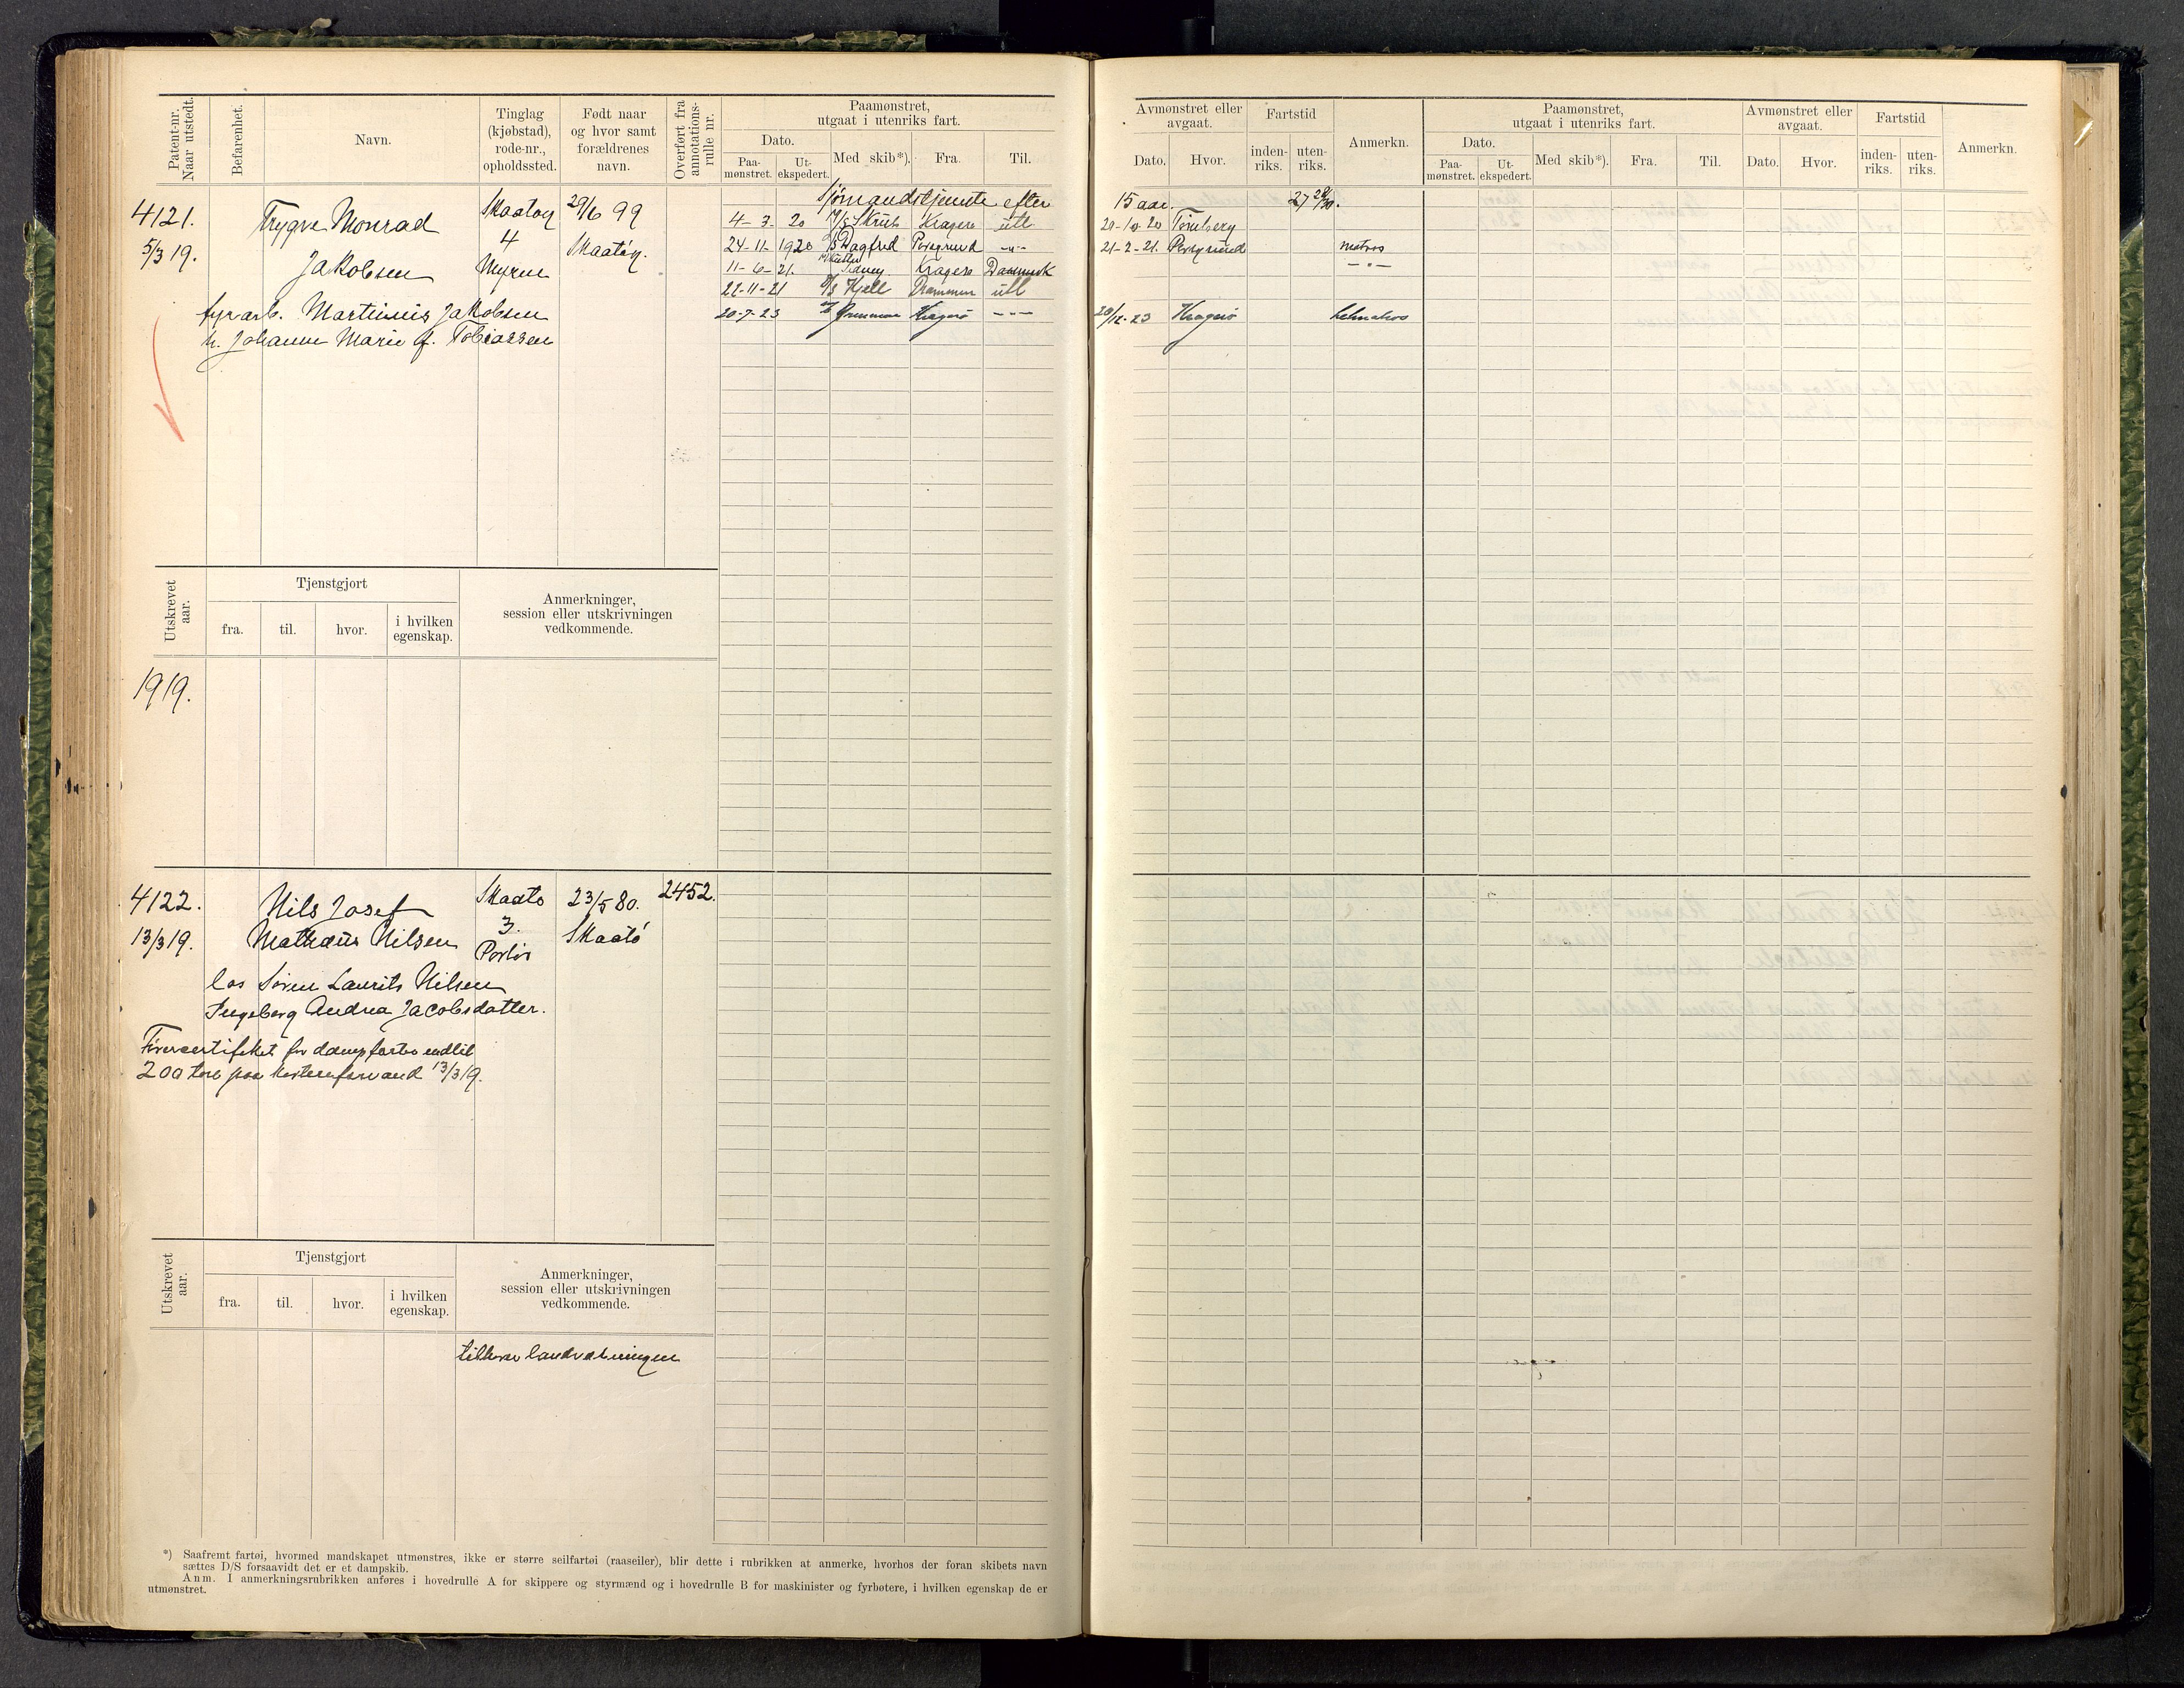 Patent-nr. Naar utstedt.
Befarenhet.
Navn.
Tinglag (kjøbstad), rode-nr., opholdssted.
Født naar og hvor samt forældrenes navn.
Overført fra annotations-rulle nr.
Paamønstret, utgaat i utenriks fart.
Dato.
Paa-mønstret.
Ut-ekspedert.
Med skib*).
Fra.
Til.
Avmønstret eller avgaat.
Dato.
Hvor.
Fartstid
inden-riks.
uten-riks.
Anmerkn.
Paamønstret, utgaat i utenriks fart.
Dato.
Paa-mønstret.
Ut-ekspedert.
Med skib*).
Fra.
Til.
Avmønstret eller avgaat.
Dato.
Hvor.
Fartstid
inden-riks.
uten-riks.
Anmerkn.
Sjømandstjeneste efter 15 aar. 27
4121. Trygve Monrad Skaatøy 29/6 99
5/3 19. Jakobsen 4 Skaatøy.
Myren
fyrarb. Martinius Jakobsen
h. Johanne Marie f. Tobiassen
4-3-20 M/S Skrub Kragerø utl 20-10-20 Tønsberg
24-11-1920 Dagfred Porsgrund -"- 21-2-21. Porsgrund matros
11-6-21. Kragerø Danmark -"-
22-11-21 Kjell Drammen utl
20-7-23 Kragerø -"- 23 Kragerø
Utskrevet aar.
Tjenstgjort
fra.
til.
hvor.
i hvilken egenskap.
Anmerkninger, session eller utskrivningen vedkommende.
1919.
4122. Nils Josef Skaatø 23/5 80. 2452.
13/3 19. Mathæus Nilsen 3. Skaatø
Portør
los Søren Laurits Nilsen
Ingeborg Andrea Jacobsdatter.
Førercertifikat for dampfartøi indtil
200 tons paa kystenfarvand 13/3 19.
Utskrevet aar.
Tjenstgjort
fra.
til.
hvor.
i hvilken egenskap.
Anmerkninger, session eller utskrivningen vedkommende.
tilhører landværningen
*) Saafremt fartøi, hvormed mandskapet utmønstres, ikke er større seilfartøi (raaseiler), blir dette i rubrikken at anmerke, hvorhos der foran skibets navn
sættes D/S forsaavidt det er et dampskib.
Anm. I anmerkningsrubrikken anføres i hovedrulle A for skippere og styrmænd og i hovedrulle B for maskinister og fyrbøtere, i hvilken egenskap de er
utmønstret.